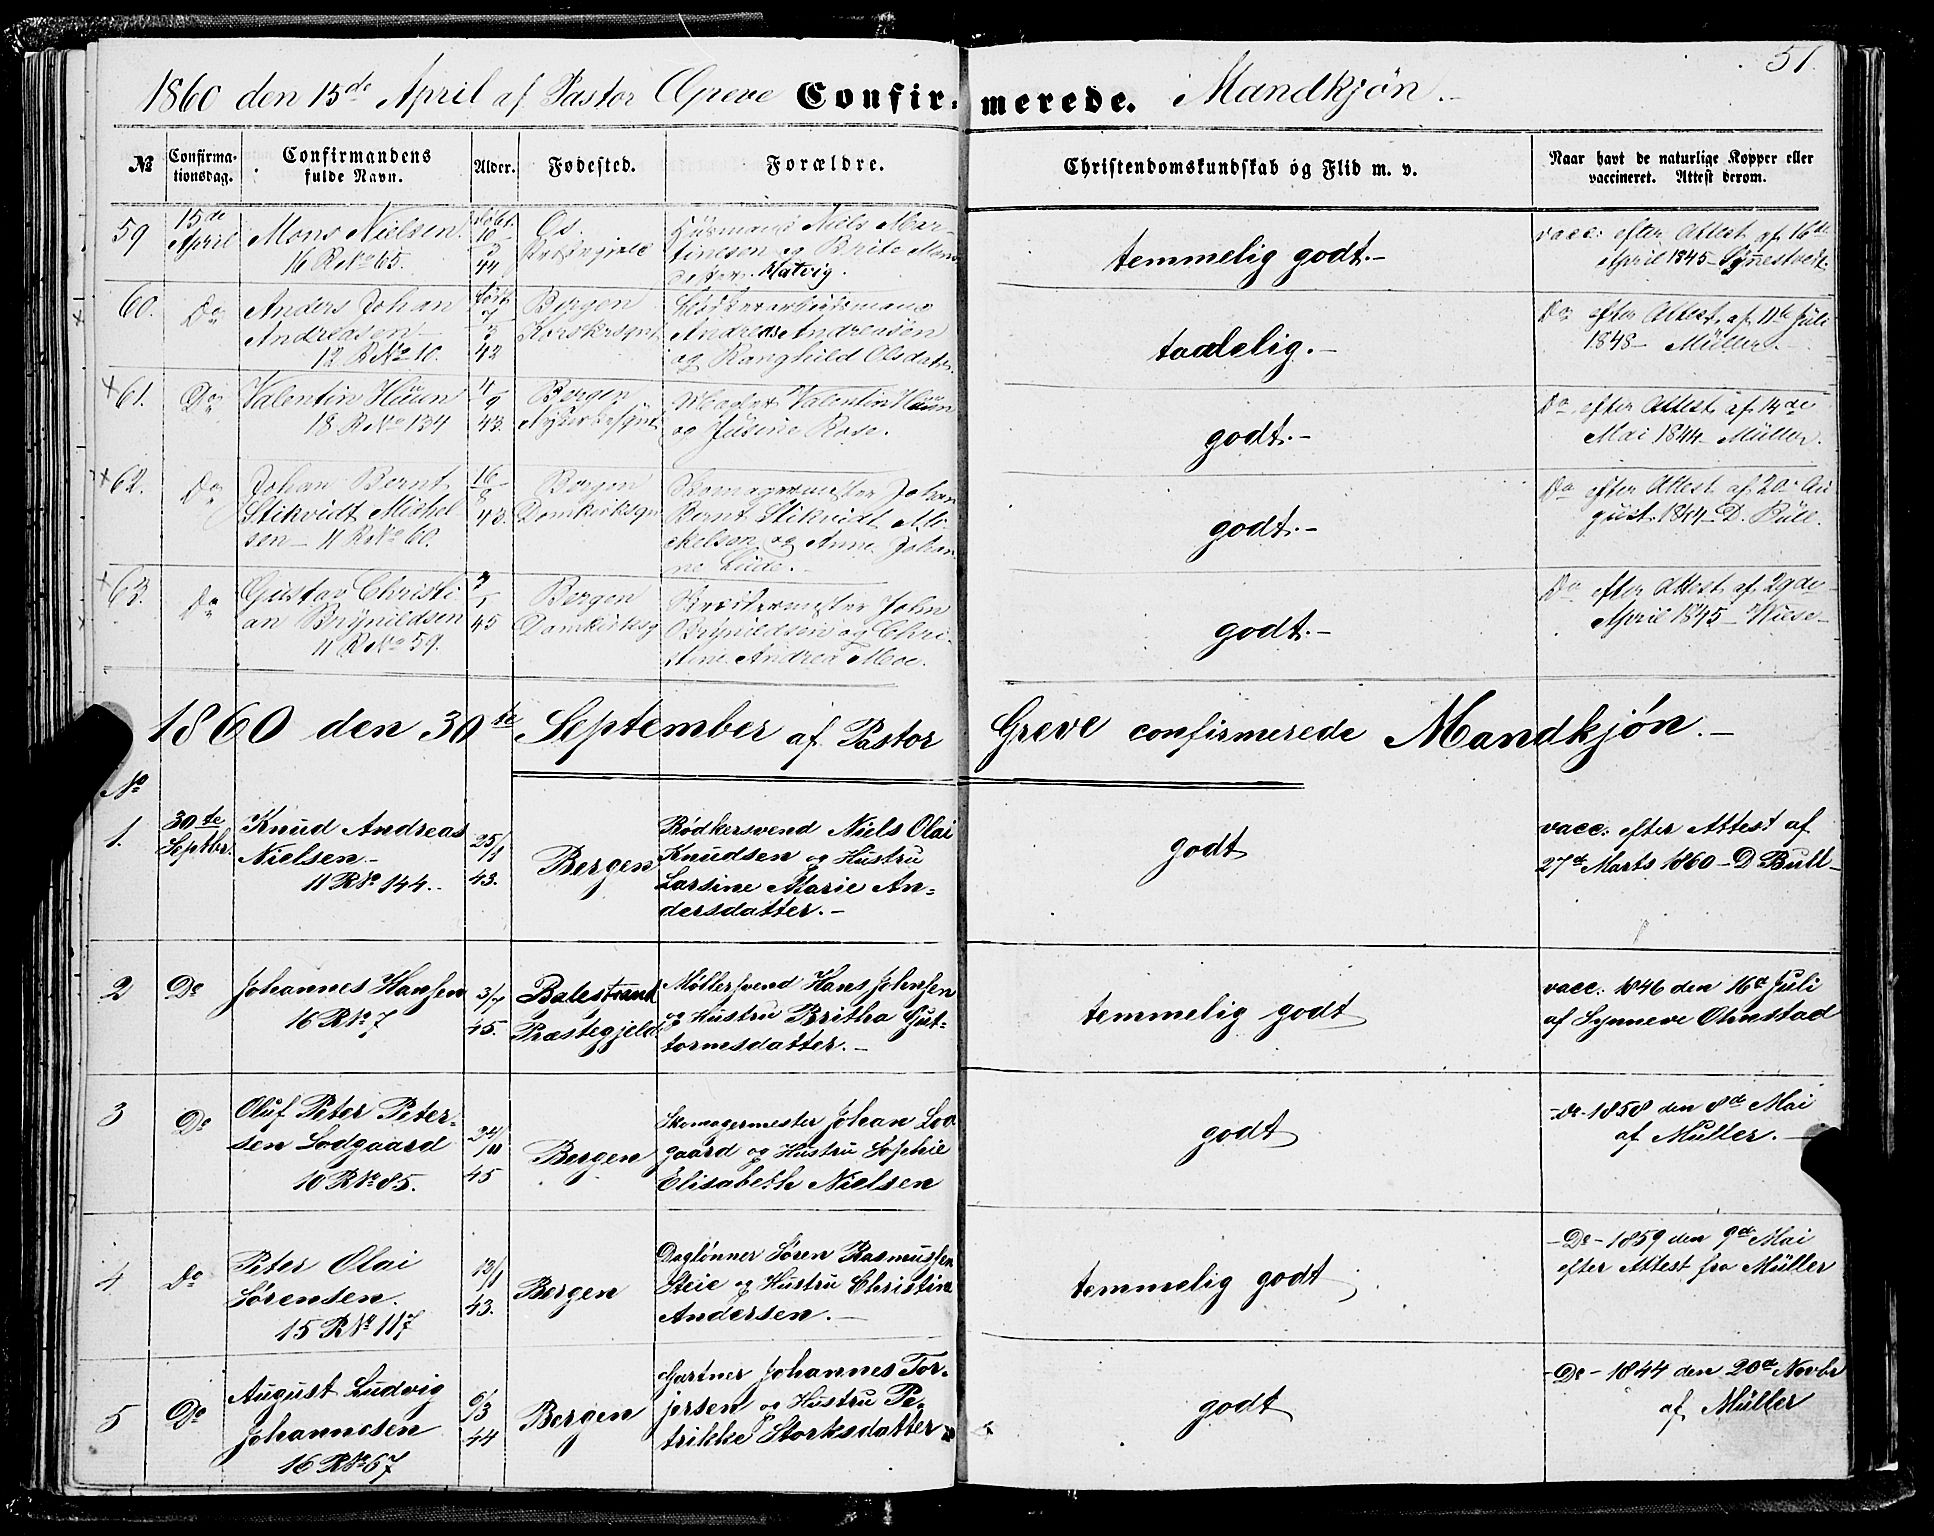 51.
1860 den 15de April af Pastor Greve Confir- merede. Mandkjøn.-
№ Confirma-tionsdag. Confirmandens fulde Navn. Alder. Fødested. Forældre. Christendomskundskab og Flid m. v. Naar havt de naturlige Kopper eller vaccineret. Attest derom.
59 15de April
Mons Nielsen
16 R No 65.
10
44
Os
Præstegield
Huusmand Niels Mar-
tinesen og Brite Mons
datter Hatvig.
temmelig godt.-
vacc: efter Attest af 16de
April 1845- Synnestvedt.
60. Do
Anders Johan
Andreasen
12 R No 10.
42
Bergen
Korskirkesgn
Andreas Andreasen
og Ranghild Olsdatter.
taalelig.-
Do efter Attest af 11te Juli
1848- Müller.-
+61. Do
Valentin Huun
18 R No 134
4
9
43.
Bergen
Nykirkesogn
Valentin Huun
og Jusine Rose.
godt.-
Do efter Attest af 14de
Mai 1844 Müller.
+62. Do
Johan Bernt
Stikvidt Michel
sen- 11 R No 60.
16
8
43.
Bergen
Domkirkesgn
Skomagermester Johan
Bernt Stikvidt Mi
kelsen og Anne Johan
ne Lude.-
godt.-
Do efter Attest af 20. Au
gust 1844- D. Büll.
+63. Do
Gustav Christi
an Brynildsen
11 R No 59.
45
Bergen
Domkirkesg
John
Brynildsen og Chri
stine Andrea Moe.
godt.-
Do efter Attest af 29de
April 1845- Wiese-
1860 den 30te September af Pastor Greve confirmerede Mandkjøn.-
No
1. 30te Septbr.
Knud Andreas
Nielsen-
11 R No 144.-
25/1
43.
Bergen
Bødkersvend Niels Olai
Knudsen og Hustru
Larsine Marie An=
dersdatter.-
godt
vacc: efter Attest af
27de Marts 1860- D Bull-
2 Do
Johannes Hansen
16 R No 7
3/7
45.
Balestrand
Præstegjeld.
Møllersvend Hans Johnsen
og Hustru Britha Gut-
tormesdatter.-
temmelig godt
vacc: 1846 den 16de Juli
af Synneve Ohnstad
3 Do
Oluf Peter Peter-
sen Lodgaard
10 R No 85.
24/11
45
Bergen
Skomagermester Johan Lod
gaard og Hustru Sophie
Elisabeth Nielsen
godt
-Do- 1858 den 8de Mai
af Müller.-
4 Do
Peter Olai
Sørensen.
15 R No 117
13/1
43.
Bergen
Daglønner Søren Rasmussen
Steie og Hustru Christine
Andersen.-
temmelig godt
-Do- 1859 den 9de Mai
efter Attest fra Müller
5 Do
August Ludvig
Johannesen
16 R No 57
6/3
44
Bergen
Gartner Johannes Tor-
jersen og Hustru Pe-
trikke Storksdatter
godt
-Do- 1844 den 20de Novbr
af Müller